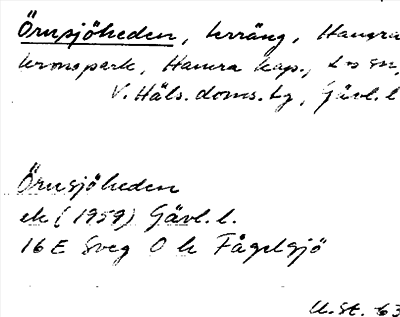 Örnsjöheden, terräng, Hamra
kronopark, Hamra kap., L:s sn,
V. Häls. doms. tg, Gävl. l
Örnsjöheden
ek (1959) Gävl. l.
16 E Sveg O h Fågelsjö
U. St. 63